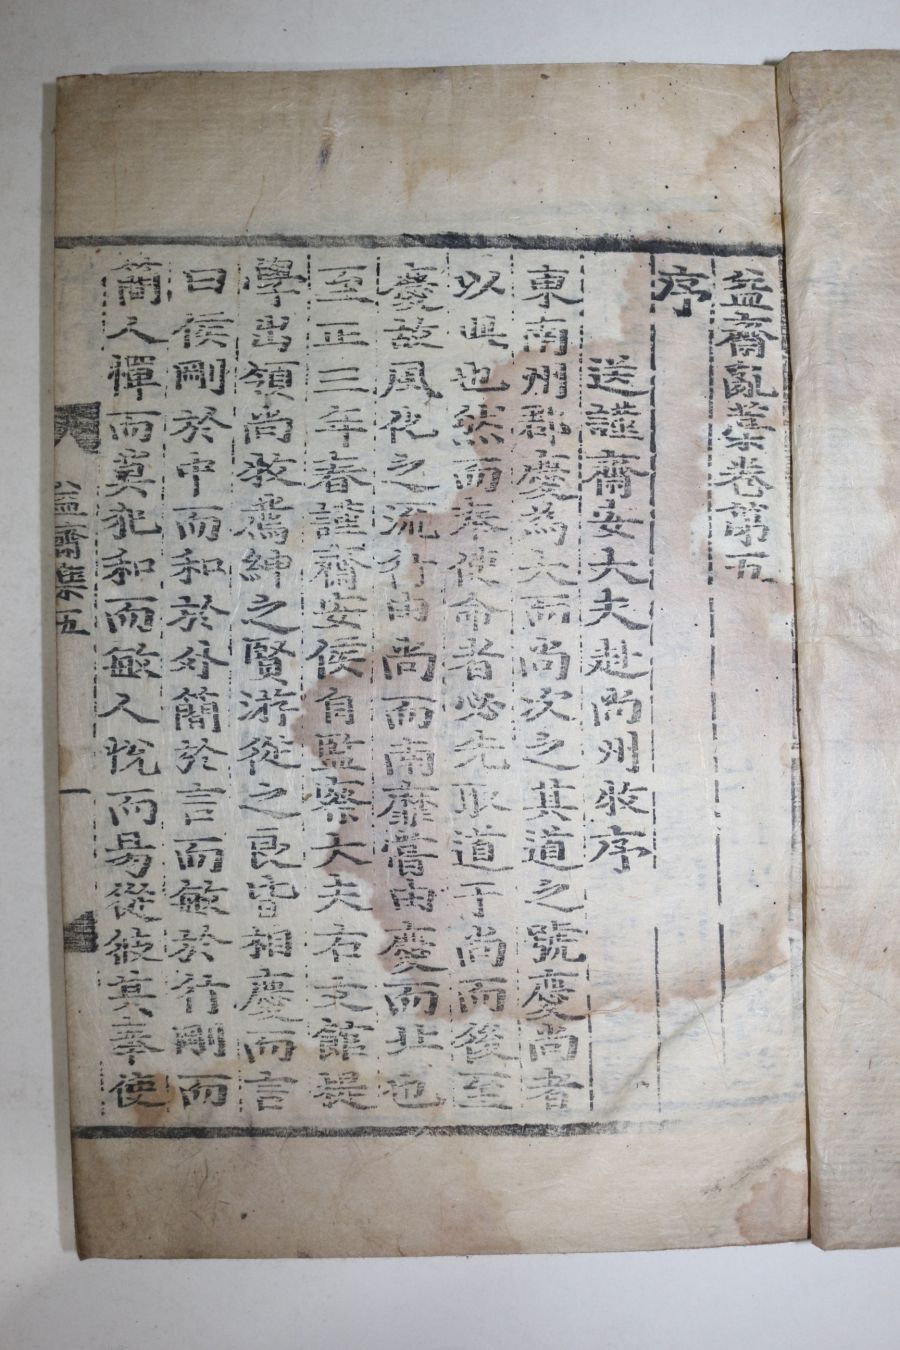 益齋亂藁卷第五
序
送謹齋安大夫赴尚州牧序
東南州郡慶爲大而尚次之其道之號慶尚者
以此也然而奉使命者必先取道于尚而後至
慶故風化之流行由尚而南靡嘗由慶而北也
至正三年春謹齋安侯自監察大夫右文館提
學出領尚牧薦紳之賢游從之良皆相慶而言
曰侯剛於中而和於外簡於言而敏於行剛而
簡人憚而莫犯和而敏人悅而易從彼其奉使
益齋集五
一